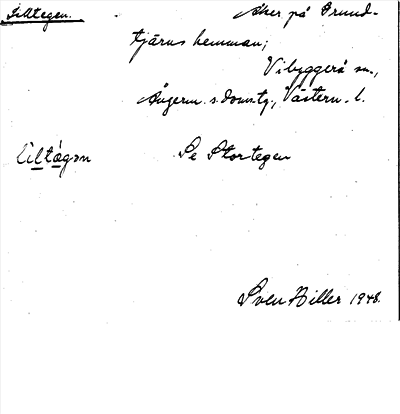 Lilltegen. Åker på Grund-
tjärns hemman;
Vibyggerå sn.,
Ångerm. s. doms.g., Västern. l.
lìltǡgən Se Stortegen
Sven Hiller 1948.